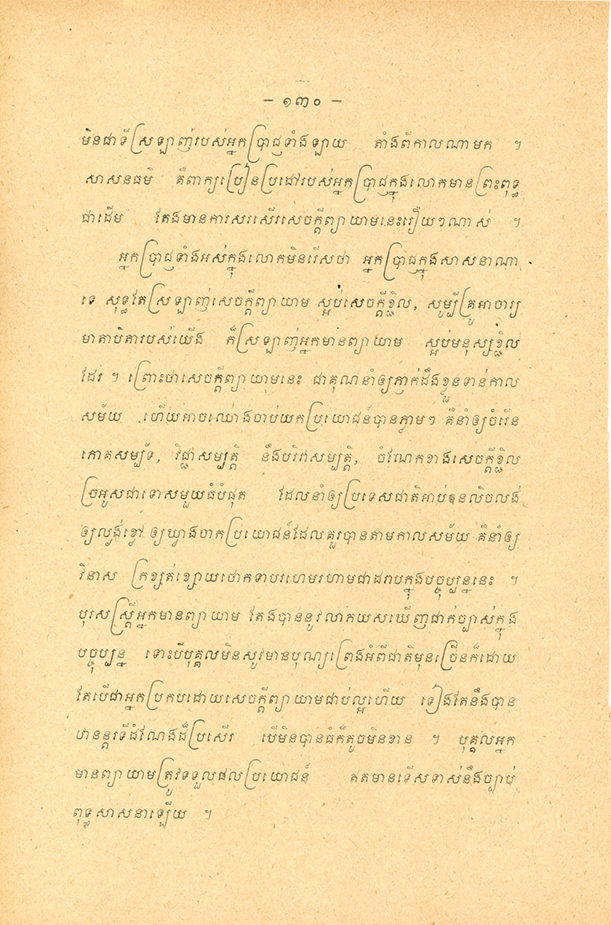 — ១៣០ —
មិនជាទីស្រឡាញ់របស់អ្នកប្រាជ្ញទាំងឡាយ តាំងពីកាលណាមក ។
សាសនធម៌ គឺពាក្យប្រៀនប្រដៅរបស់អ្នកប្រាជ្ញក្នុងលោកមានព្រះពុទ្ធ
ជាដើម តែងមានការសរសើរសេចក្ដីព្យាយាមនេះរឿយៗណាស់ ។
អ្នកប្រាជ្ញទាំងអស់ក្នុងលោកមិនរើសថា អ្នកប្រាជ្ញក្នុងសាសនាណា
ទេ សុទ្ធតែស្រឡាញ់សេចក្ដីព្យាយាម ស្អប់សេចក្ដីខ្ជិល, សូម្បីគ្រូអាចារ្យ
មាតាបិតារបស់យើង ក៏ស្រឡាញ់អ្នកមានព្យាយាម ស្អប់មនុស្សខ្ជិល
ដែរ ។ ព្រោះថាសេចក្ដីព្យាយាមនេះ ជាគុណនាំឲ្យភ្ញាក់ដឹងខ្លួនទាន់កាល
សម័យ ហើយអាចឈោងចាប់យកប្រយោជន៍បានភ្លាមៗ គឺនាំឲ្យចំរើន
ភោគសម្បទ័, វិជ្ជាសម្បត្តិ នឹងបរិវារសម្បត្តិ, ចំណែកខាងសេចក្ដីខ្ជិល
ច្រអូសជាទោសមួយធំបំផុត ដែលនាំឲ្យប្រទេសជាតិអាប់ឱនលិចលង់
ឲ្យល្ងង់ខ្លៅ ឲ្យឃ្លាងចាកប្រយោជន៍ដែលគួរបានតាមកាលសម័យ គឺនាំឲ្យ
វិនាស ក្រខ្សត់ខ្សោយថោកទាបរហេមរហាមជាដរាបក្នុងបច្ចុប្បន្ននេះ ។
បុរសស្ត្រីអ្នកមានព្យាយាម តែងបាននូវលាភយសឃើញជាក់ច្បាស់ក្នុង
បច្ចុប្បន្ន ទោះបីបុគ្គលមិនសូវមានបុណ្យព្រេងអំពីជាតិមុនច្រើនក៏ដោយ
តែបើជាអ្នកប្រកបដោយសេចក្ដីព្យាយាមជាប់ល្អហើយ ទៀងតែនឹងបាន
ឋានន្តរទីដំណែងដ៏ប្រសើរ បើមិនបានធំក៏តូចមិនខាន ។ បុគ្គលអ្នក
មានព្យាយាមត្រូវទទួលផលប្រយោជន៍ ឥតមានទើសទាស់នឹងច្បាប់
ពុទ្ធសាសនាឡើយ ។